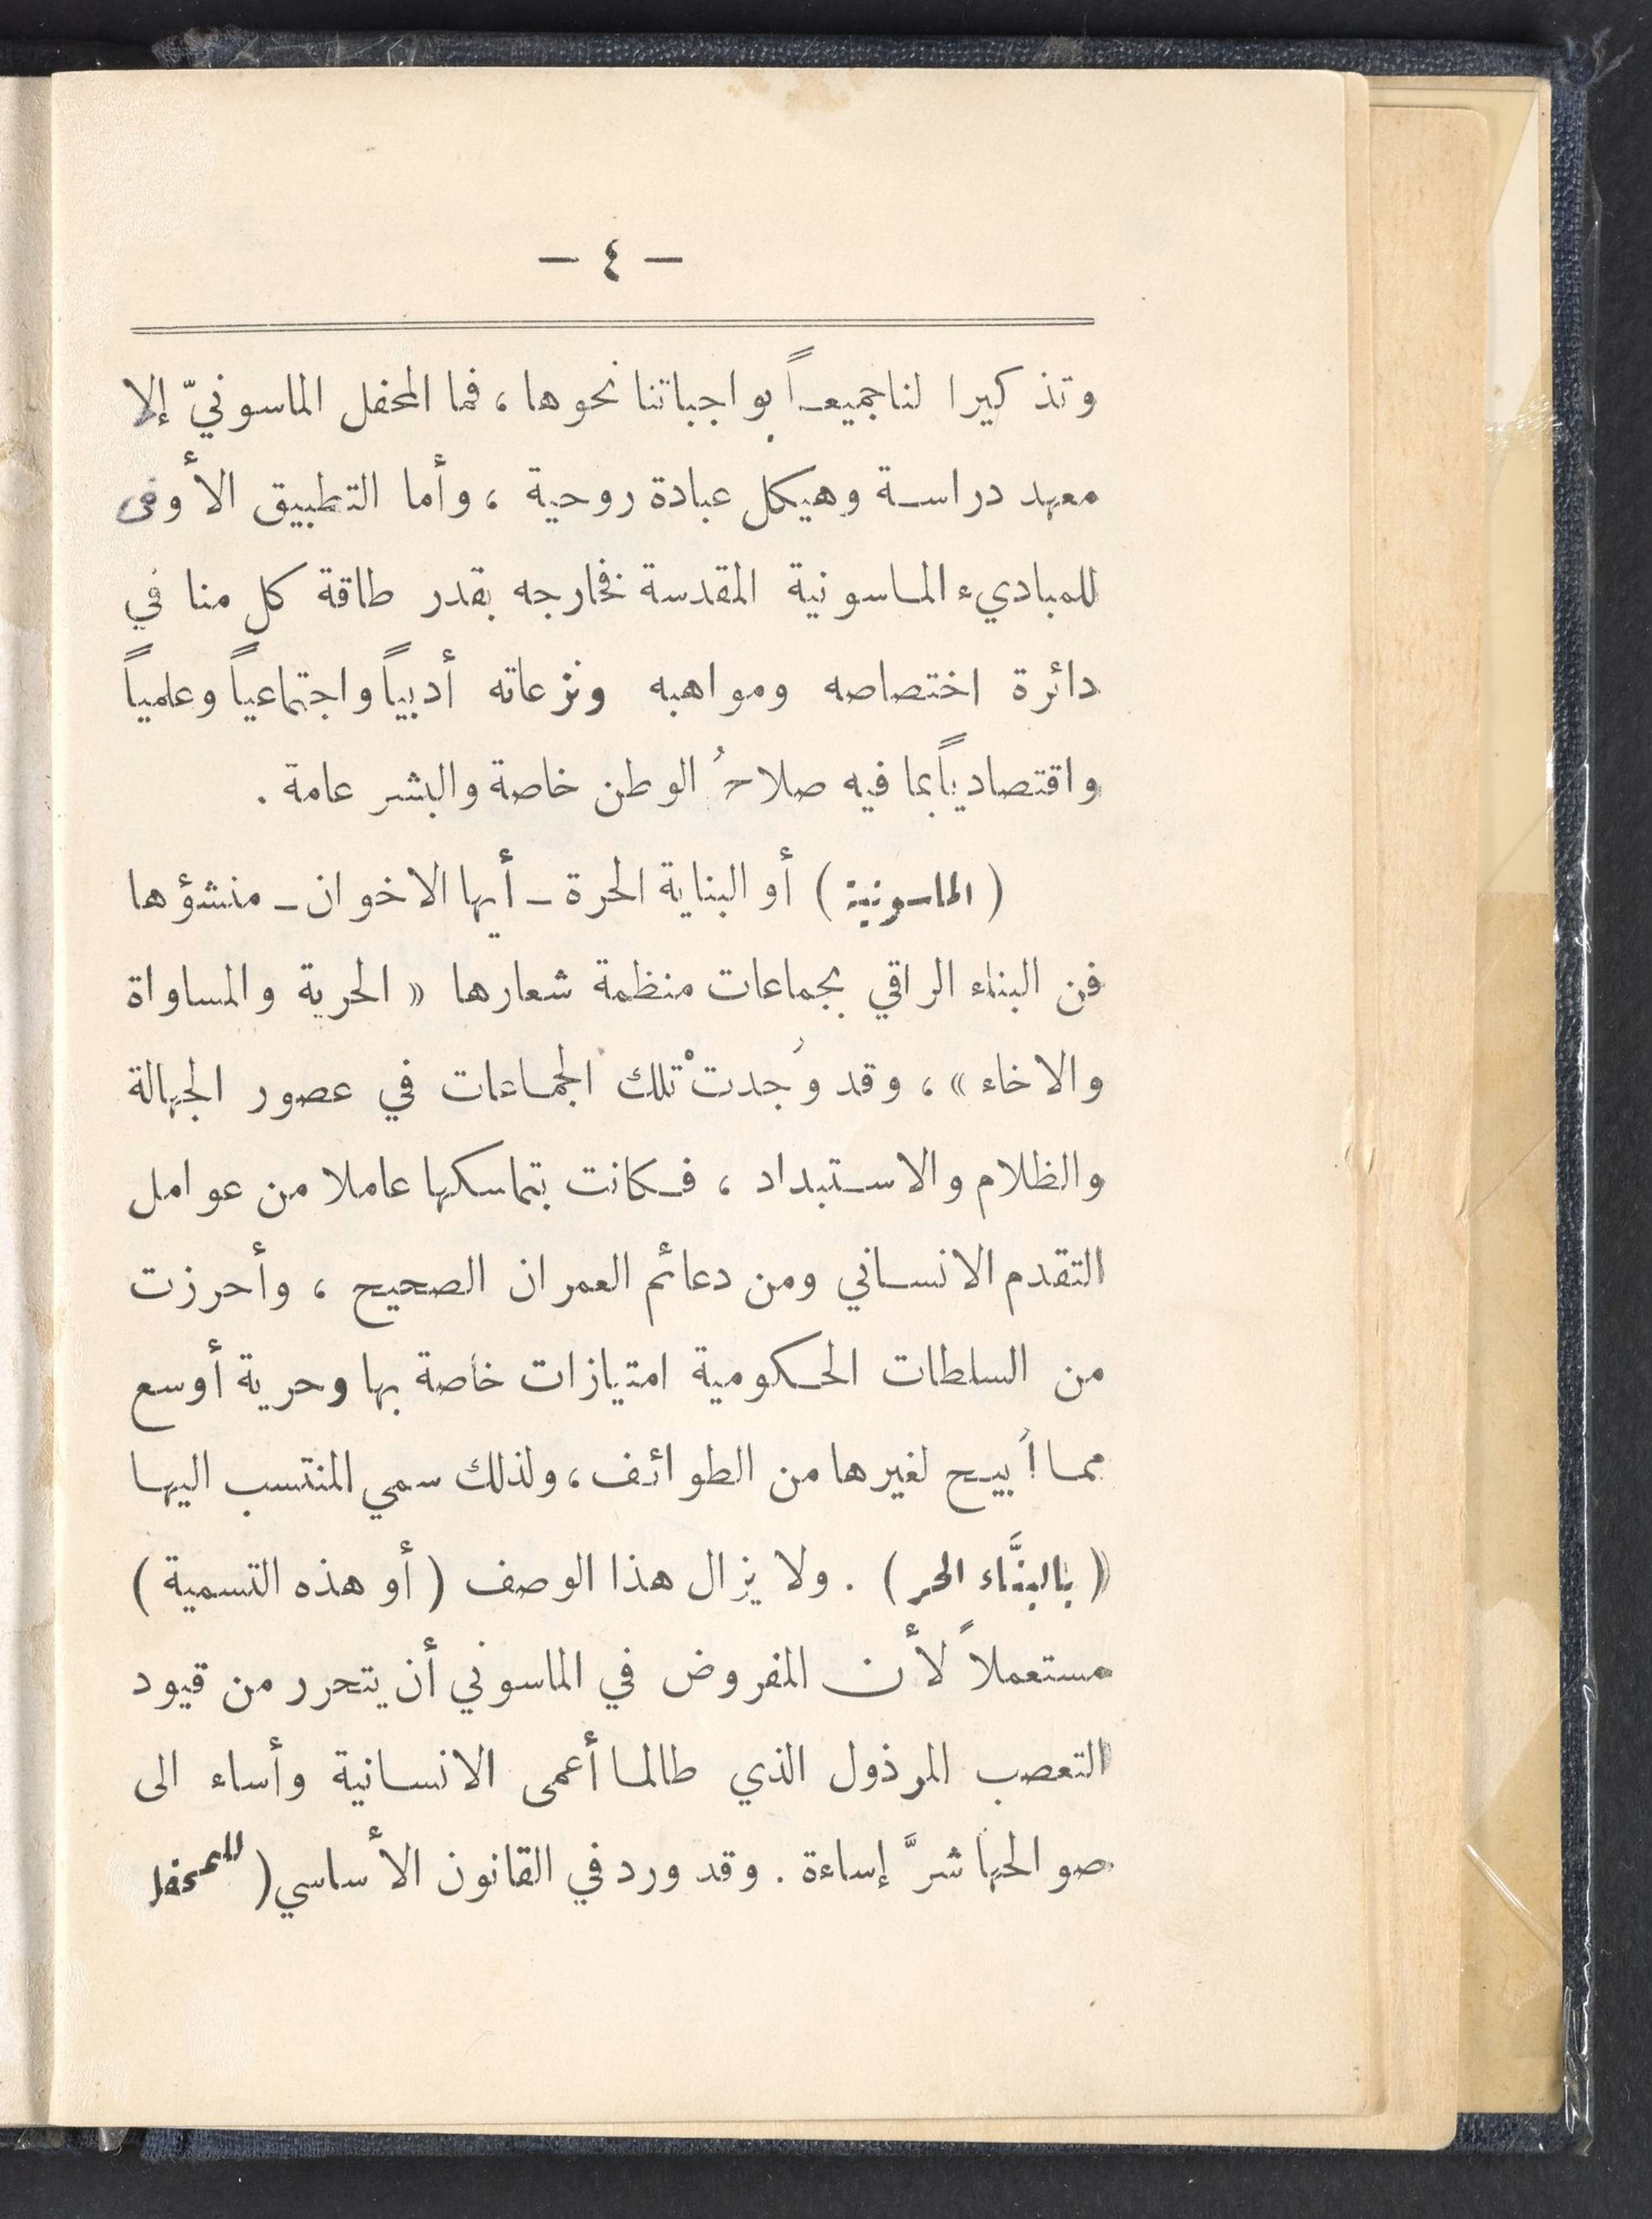 — ٤ —
وتذكيرا لنا جميعـاً بواجباتنا نحوها ، فما المحفل الماسونيّ إلا
معهد دراسـة وهيكل عبادة روحية ، وأما التطبيق الأوفى
للمباديء الماسونية المقدسة فخارجه بقدر طاقة كل منا في
دائرة اختصاصه ومواهبه ونزعاته أدبياً واجتماعياً وعلمياً
واقتصادياً بما فيه صلاحُ الوطن خاصة والبشر عامة .
( الماسونية ) أو البناية الحرة ـ أيها الاخوان ـ منشؤها
فن البناء الراقي بجماعات منظمة شعارها « الحرية والمساواة
والاخاء » ، وقد وُجدتْ تلك الجماعات في عصور الجهالة
والظلام والاسـتبداد ، فـكانت بتماسكها عاملا من عوامل
التقدم الانسـاني ومن دعائم العمران الصحيح ، وأحرزت
من السلطات الحـكومية امتيازات خاصة بها وحرية أوسع
ممـا أُبيـح لغيرها من الطوائف ، ولذلك سمي المنتسب اليهـا
( بالبنَّاء الحر ) . ولا يزال هذا الوصف ( أو هذه التسمية )
مستعملاً لأن المفروض في الماسوني أن يتحرر من قيود
التعصب المرذول الذي طالمـا أعمى الانسـانية وأساء الى
صوالحها شرَّ إساءة . وقد ورد في القانون الأساسي ( للمحفل